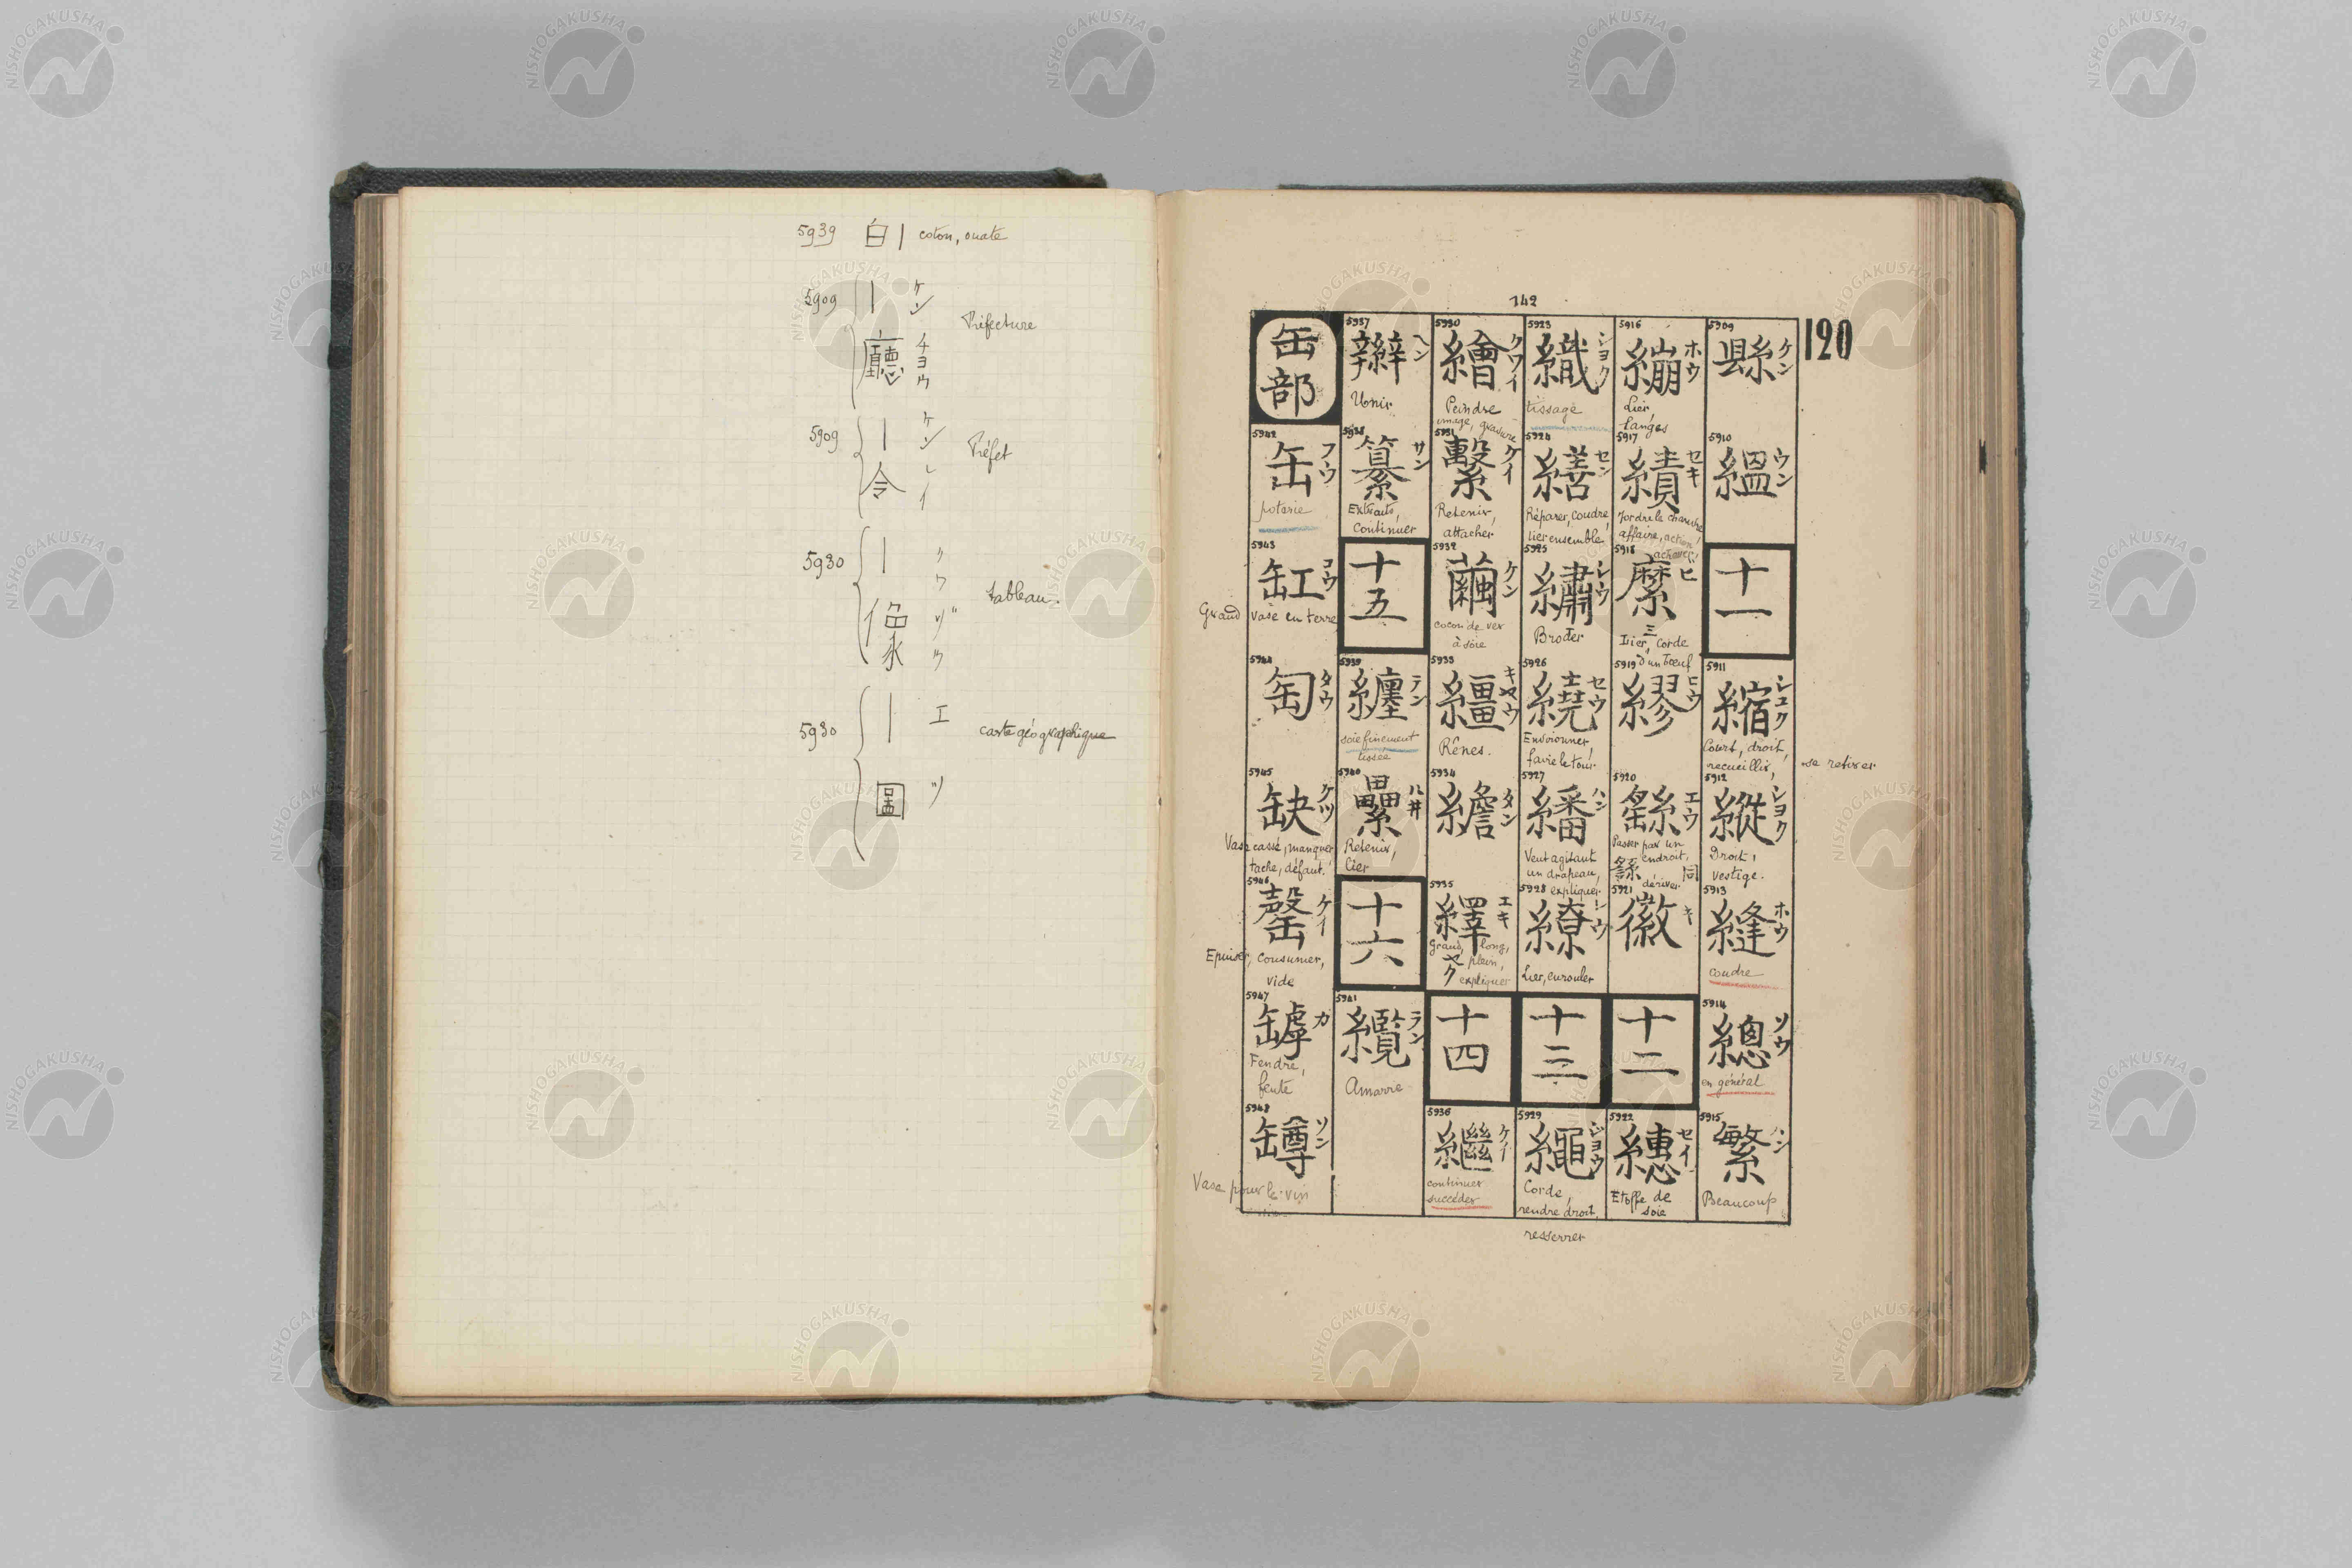 5939 白｜ coton, ouate
5909 ｜ ケン
廳 チヨウ
Préfecture
5909 ｜ ケン
令 レイ
Préfet
5930 ｜ クワ
像 ヅウ
tableau.
5930 ｜ エ
圖 ツ
carte géographique
142
120
5909 縣 ケン
5910 縕 ウン
十一
5911 縮 シュク
Court, droit,
recueillir, se retirer
5912 縱 シヨク
Droit,
vestige.
5913 縫 ホウ
coudre
5914 總 ソウ
en général
5915 繁 ハン
Beaucoup
5916 繃 ホウ
Lier,
langes
5917 績 セキ
Tordre le chanvre,
affaire, action,
achever,
5918 縻 ビ
Lier, corde
d'un bœuf
5919 繆
5920 繇 エウ
Passer par un
endroit,
dériver
同
5921 徽 キ
十二
5922 繐 セイ
Etoffe de
soie
5923 織 シヨク
tissage
5924 繕 セン
Réparer, coudre,
lier ensemble
5925 繡 シウ
Broder
5926 繞 セウ
Environner,
faire le tour
5927 繙 ハン
Vent agitant
un drapeau,
expliquer
5928 繚
Lier, enrouler
十三
5929 繩 ジヨウ
Corde,
rendre droit,
resserrer
5930 繪 クワイ
Peindre
image, gravure
5931 繫 ケイ
Retenir,
attacher
5932 繭 ケン
cocon de ver
à soie
5933 繮 キヤウ
Rênes.
5934 繵 タン
5935 繹 エキ
Grand, long,
ヤク plein,
expliquer
十四
5936 繼 ケイ
continuer
succéder
5937 辮 ヘン
Unir
5938 纂 サン
Extraits,
continuer
十五
5939 纏 テン
soie finement
tissée
5940 纍 ルヰ
Retenir,
lier
十六
5941 纜 ラン
Amarre
缶部
5942 缶 フウ
poterie
5943 缸 コウ
Grand vase en terre
5944 匋 タウ
5945 缺 ケツ
Vase cassé, manquer
tache, défaut.
5946 罄 ケイ
Epuiser, consumer,
vide
5947 罅 カ
Fendre,
fente
5948 罇 ソン
Vase pour le vin